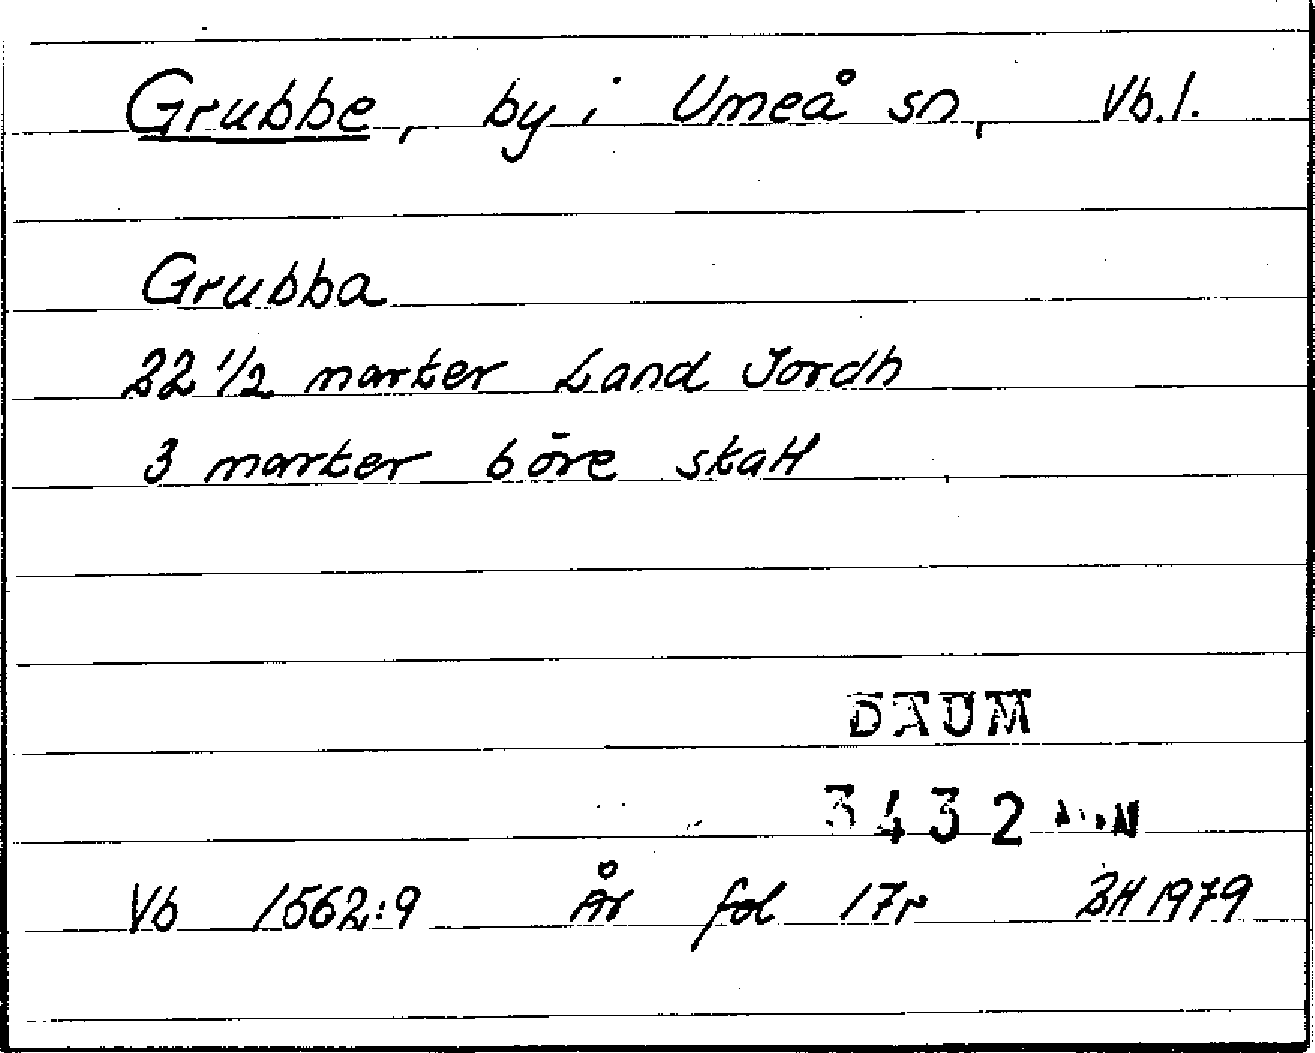 Grubbe, by i Umeå sn, Vb.l.
Grubba
22 1/2 marker Land Jordh
3 marker 6 öre skatt
DAUM
3432
Vb 1562:9 År fol 17r BH 1979